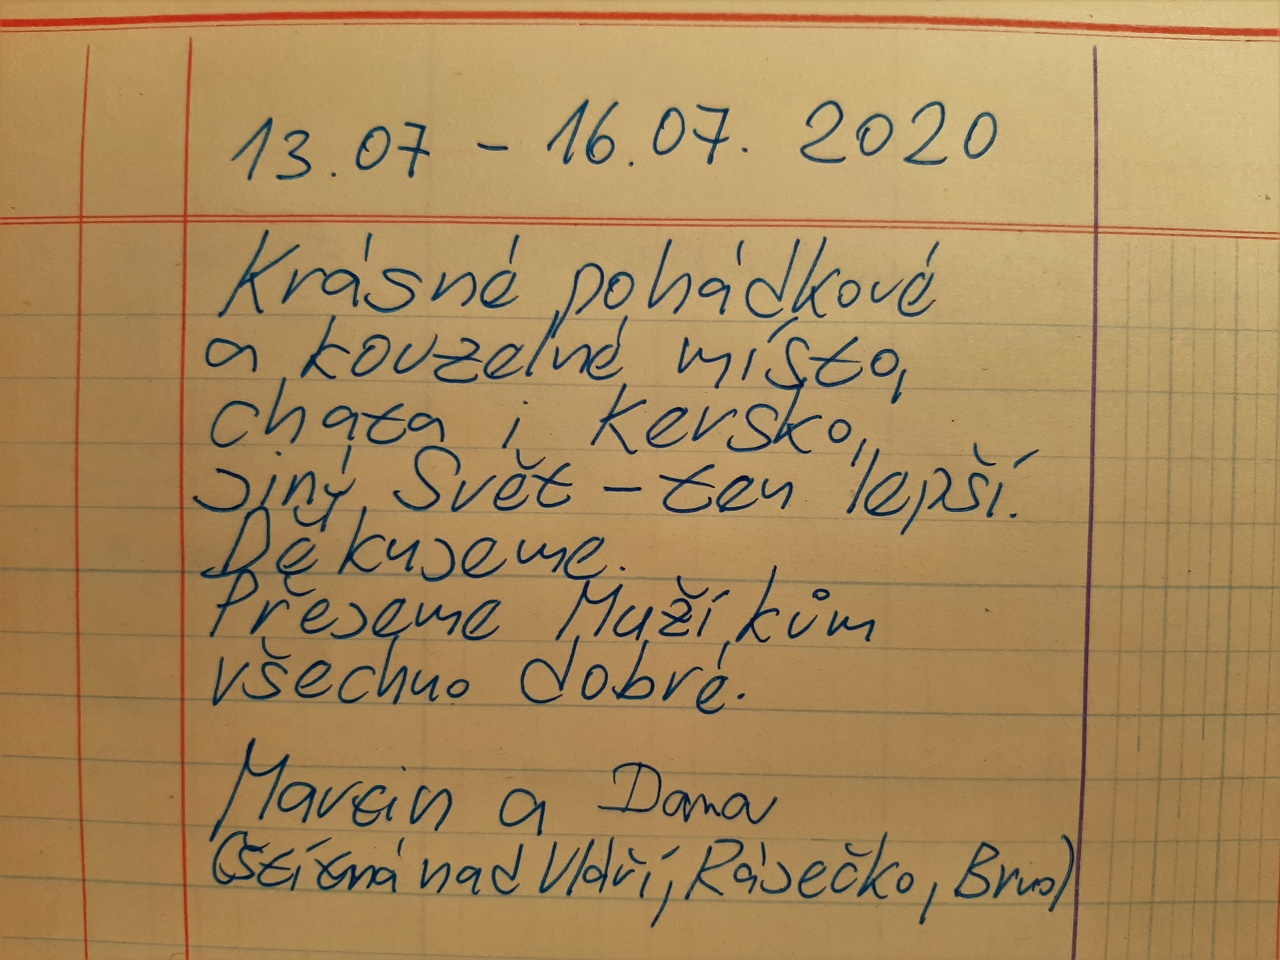 13.07 - 16.07. 2020
Krásné pohádkové
a kouzelné místo,
chata i Kersko,
jiný Svět - ten lepší.
Děkujeme.
Přejeme Mužíkům
všechno dobré.
Martin a Dana
(Štítná nad Vláří, Ráječko, Brno)